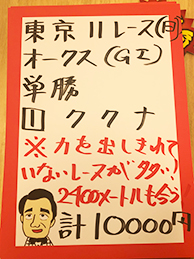 東京11レース(日)
オークス(GI)
単勝
1 ククナ
※力を出しきれて
いないレースがタタッ!
2400メートルもらう
計10000円